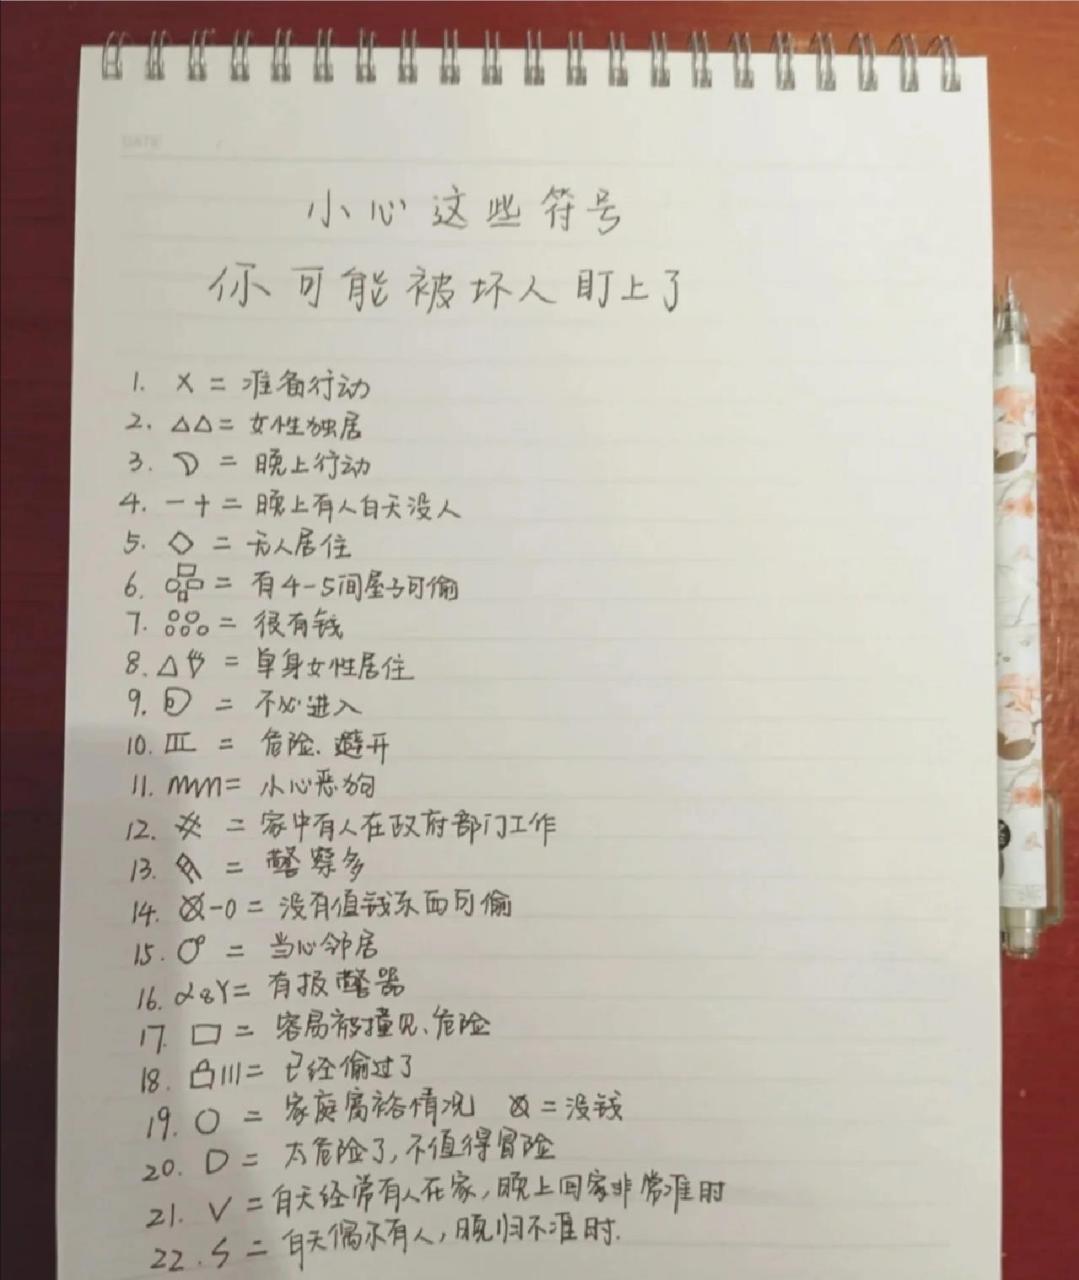 DATE
小心这些符号
你可能被坏人盯上了
1. × = 准备行动
2. △△ = 女性独居
3. = 晚上行动
4. — + = 晚上有人白天没人
5. ◇ = 无人居住
6. = 有4-5间屋子可偷
7. = 很有钱
8. △ = 单身女性居住
9. = 不必进入
10. = 危险、避开
11. = 小心恶狗
12. = 家中有人在政府部门工作
13. = 警察多
14. -0 = 没有值钱东西可偷
15. = 当心邻居
16. α8Y = 有报警器
17. □ = 容易被撞见、危险
18. III = 已经偷过了
19. ○ = 家庭富裕情况 = 没钱
20. D = 太危险了,不值得冒险
21. V = 白天经常有人在家,晚上回家非常准时
22. S = 白天偶尔有人,晚归不准时.